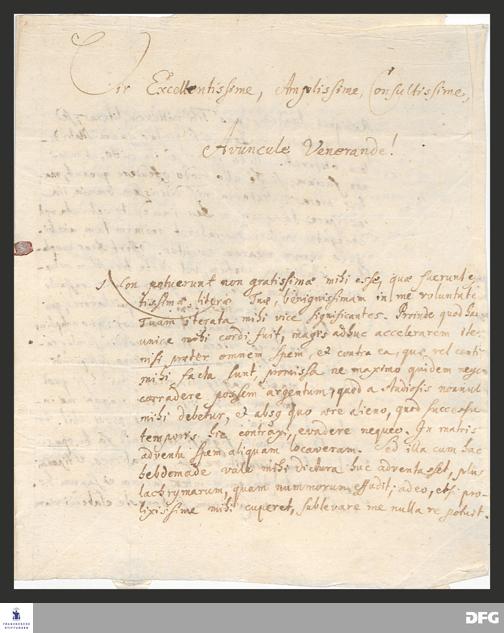 Vir Excellentissime, Amplissime, Consultissime,
Avuncule Venerande!
Non potuerunt non gratissimæ mihi esse, quæ fuerunt
tissimæ, literæ Tuæ, benignissimam in me voluntate
Tuam iterata mihi vice significantes. Proinde quod
unice mihi cordi fuit, magis adhuc accelerarem ite
nisi præter omnem spem, et contra ea, quæ vel centi
mihi facta sunt, promissa ne maximo quidem
corradere possem argentum, quod a studiosis nonnul
mihi debetur, et absq quo ære alieno, quod successu
temporis hic contraxi, evadere nequeo. In matris
adventu spem aliquam locaveram. Sed illa cum hac
hebdomade vale mihi dictura huc adventasset, plus
lachrymarum, quam nummorum effudit; adeo, etsi pro-
lixissime mihi cuperet, sublevare me nulla re potuit.
FRANCKESCHE
STIFTUNGEN
DFG